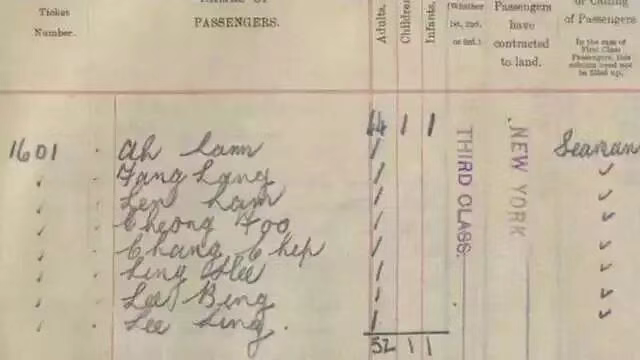 Ticket
Number.
PASSENGERS.
Adults,
Children
Infants,
(Whether
1st, 2nd,
or 3rd.)
Passengers
have
contracted
to land.
or Calling
of Passengers
In the case of
First Class
Passengers, this
column need not
be filled up.
44 1 1
1601 Ah Lam Seaman
Fang Lang
Len Lam
Cheong Foo
Chang Chip
Ling Hee
Lee Bing
Lee Ling.
THIRD CLASS.
NEW YORK
52 1 1